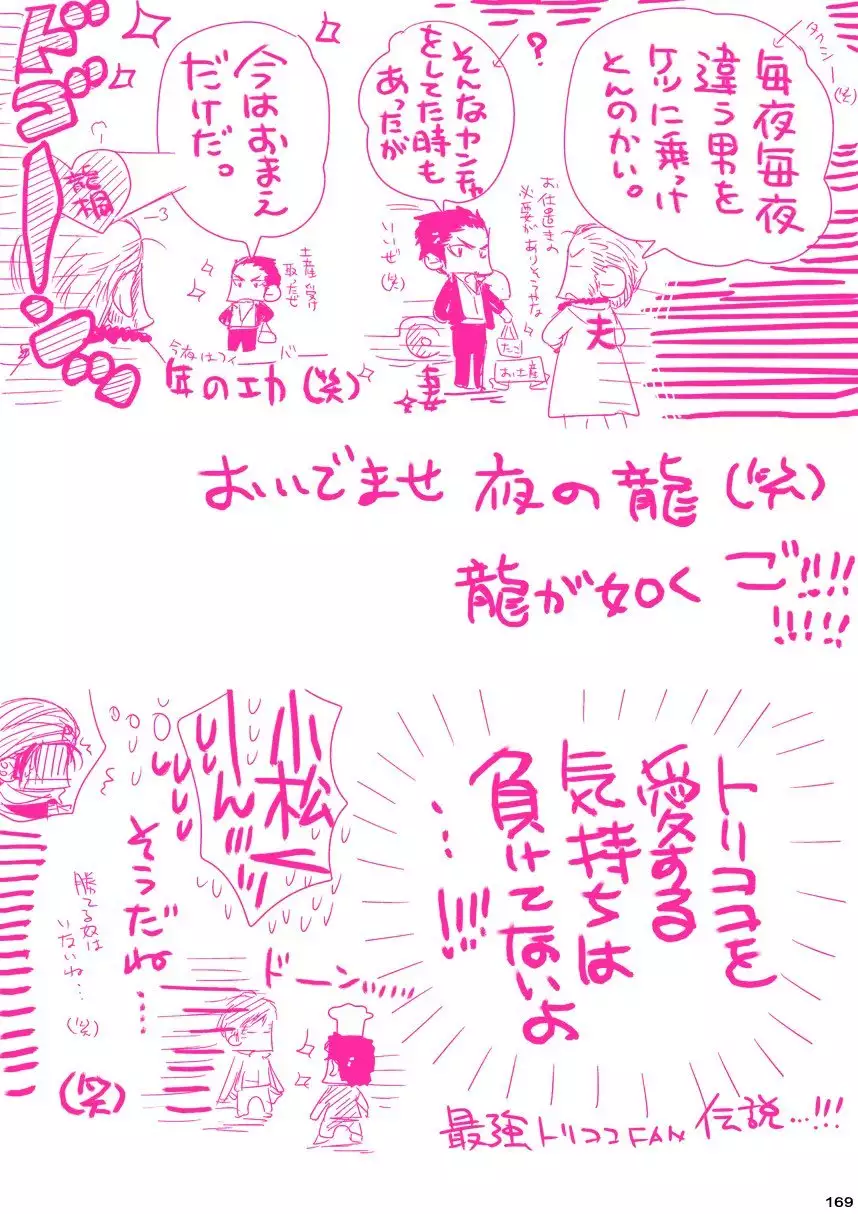 タクシー(笑)
毎夜毎夜
違う男を
ケツに乗っけ
とんのかい。
?
そんなヤンチャ
をしてた時も
あったが
お仕置きの
必要がありそうやな
いいぜ(笑)
夫
妻
たこ
お土産
今はおまえ
だけだ。
土産受け
取ったぜ
龍桐
年の工力(笑)
おいでませ 夜の龍(笑)
龍が如く ご!!!!
!!!!!
トリココを
愛する
気持ちは
負けてないよ
…!!!
小松
くーん!!!
そうだね…
勝てる奴は
いないね…
(笑)
(笑)
ドーン
最強トリココFAN伝説…!!!
169